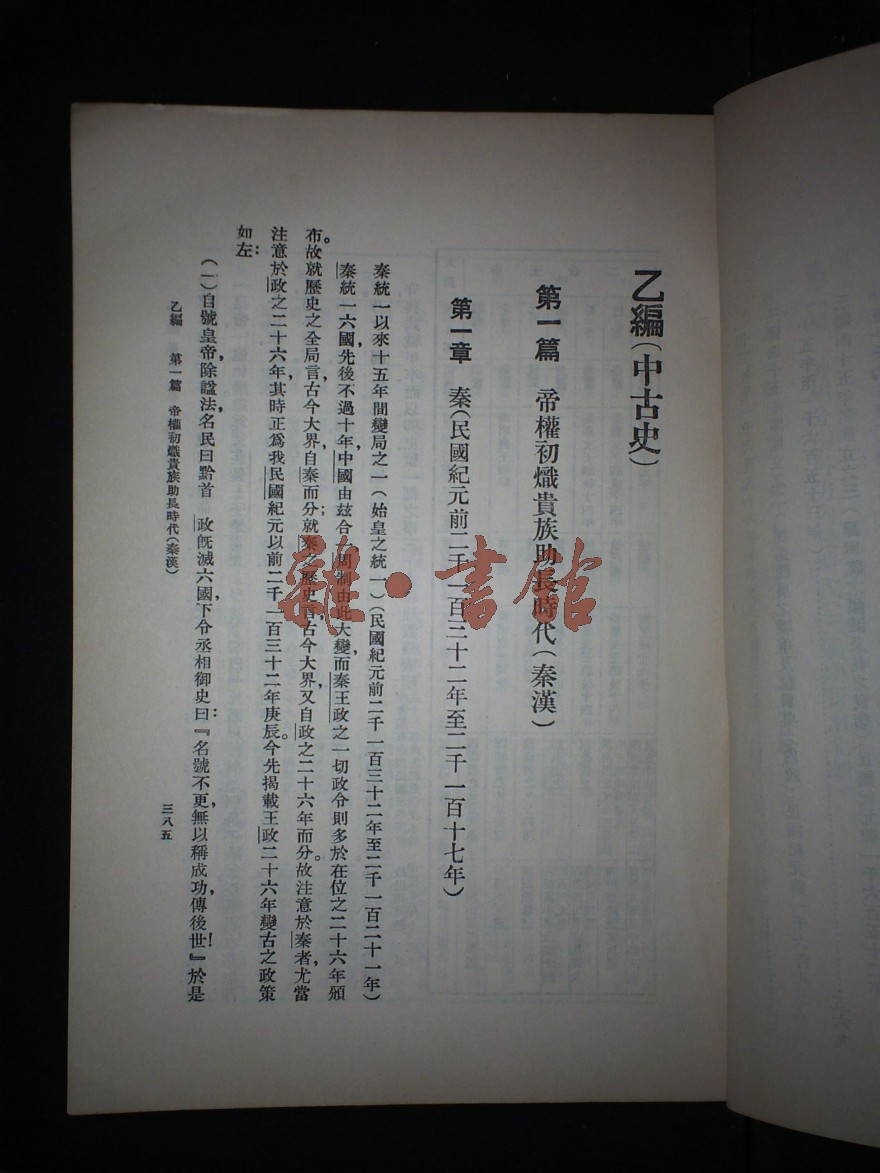 乙編(中古史)
第一篇 帝權初熾貴族助長時代(秦漢)
第一章 秦(民國紀元前二千一百三十二年至二千一百十七年)
秦統一以來十五年間變局之一(始皇之統一)(民國紀元前二千一百三十二年至二千一百二十一年)
秦統一六國,先後不過十年,中國由茲合一,周制由此大變,而秦王政之一切政令則多於在位之二十六年頒
布。故就歷史之全局言,古今大界,自秦而分;就秦之歷史言,古今大界,又自政之二十六年而分。故注意於秦者,尤當
注意於政之二十六年,其時正爲我民國紀元以前二千一百三十二年庚辰。今先揭載王政二十六年變古之政策
如左:
(一)自號皇帝,除諡法,名民曰黔首 政旣滅六國,下令丞相御史曰:『名號不更,無以稱成功,傳後世!』於是
乙編 第一篇 帝權初熾貴族助長時代(秦漢)
三八五
雜·書館